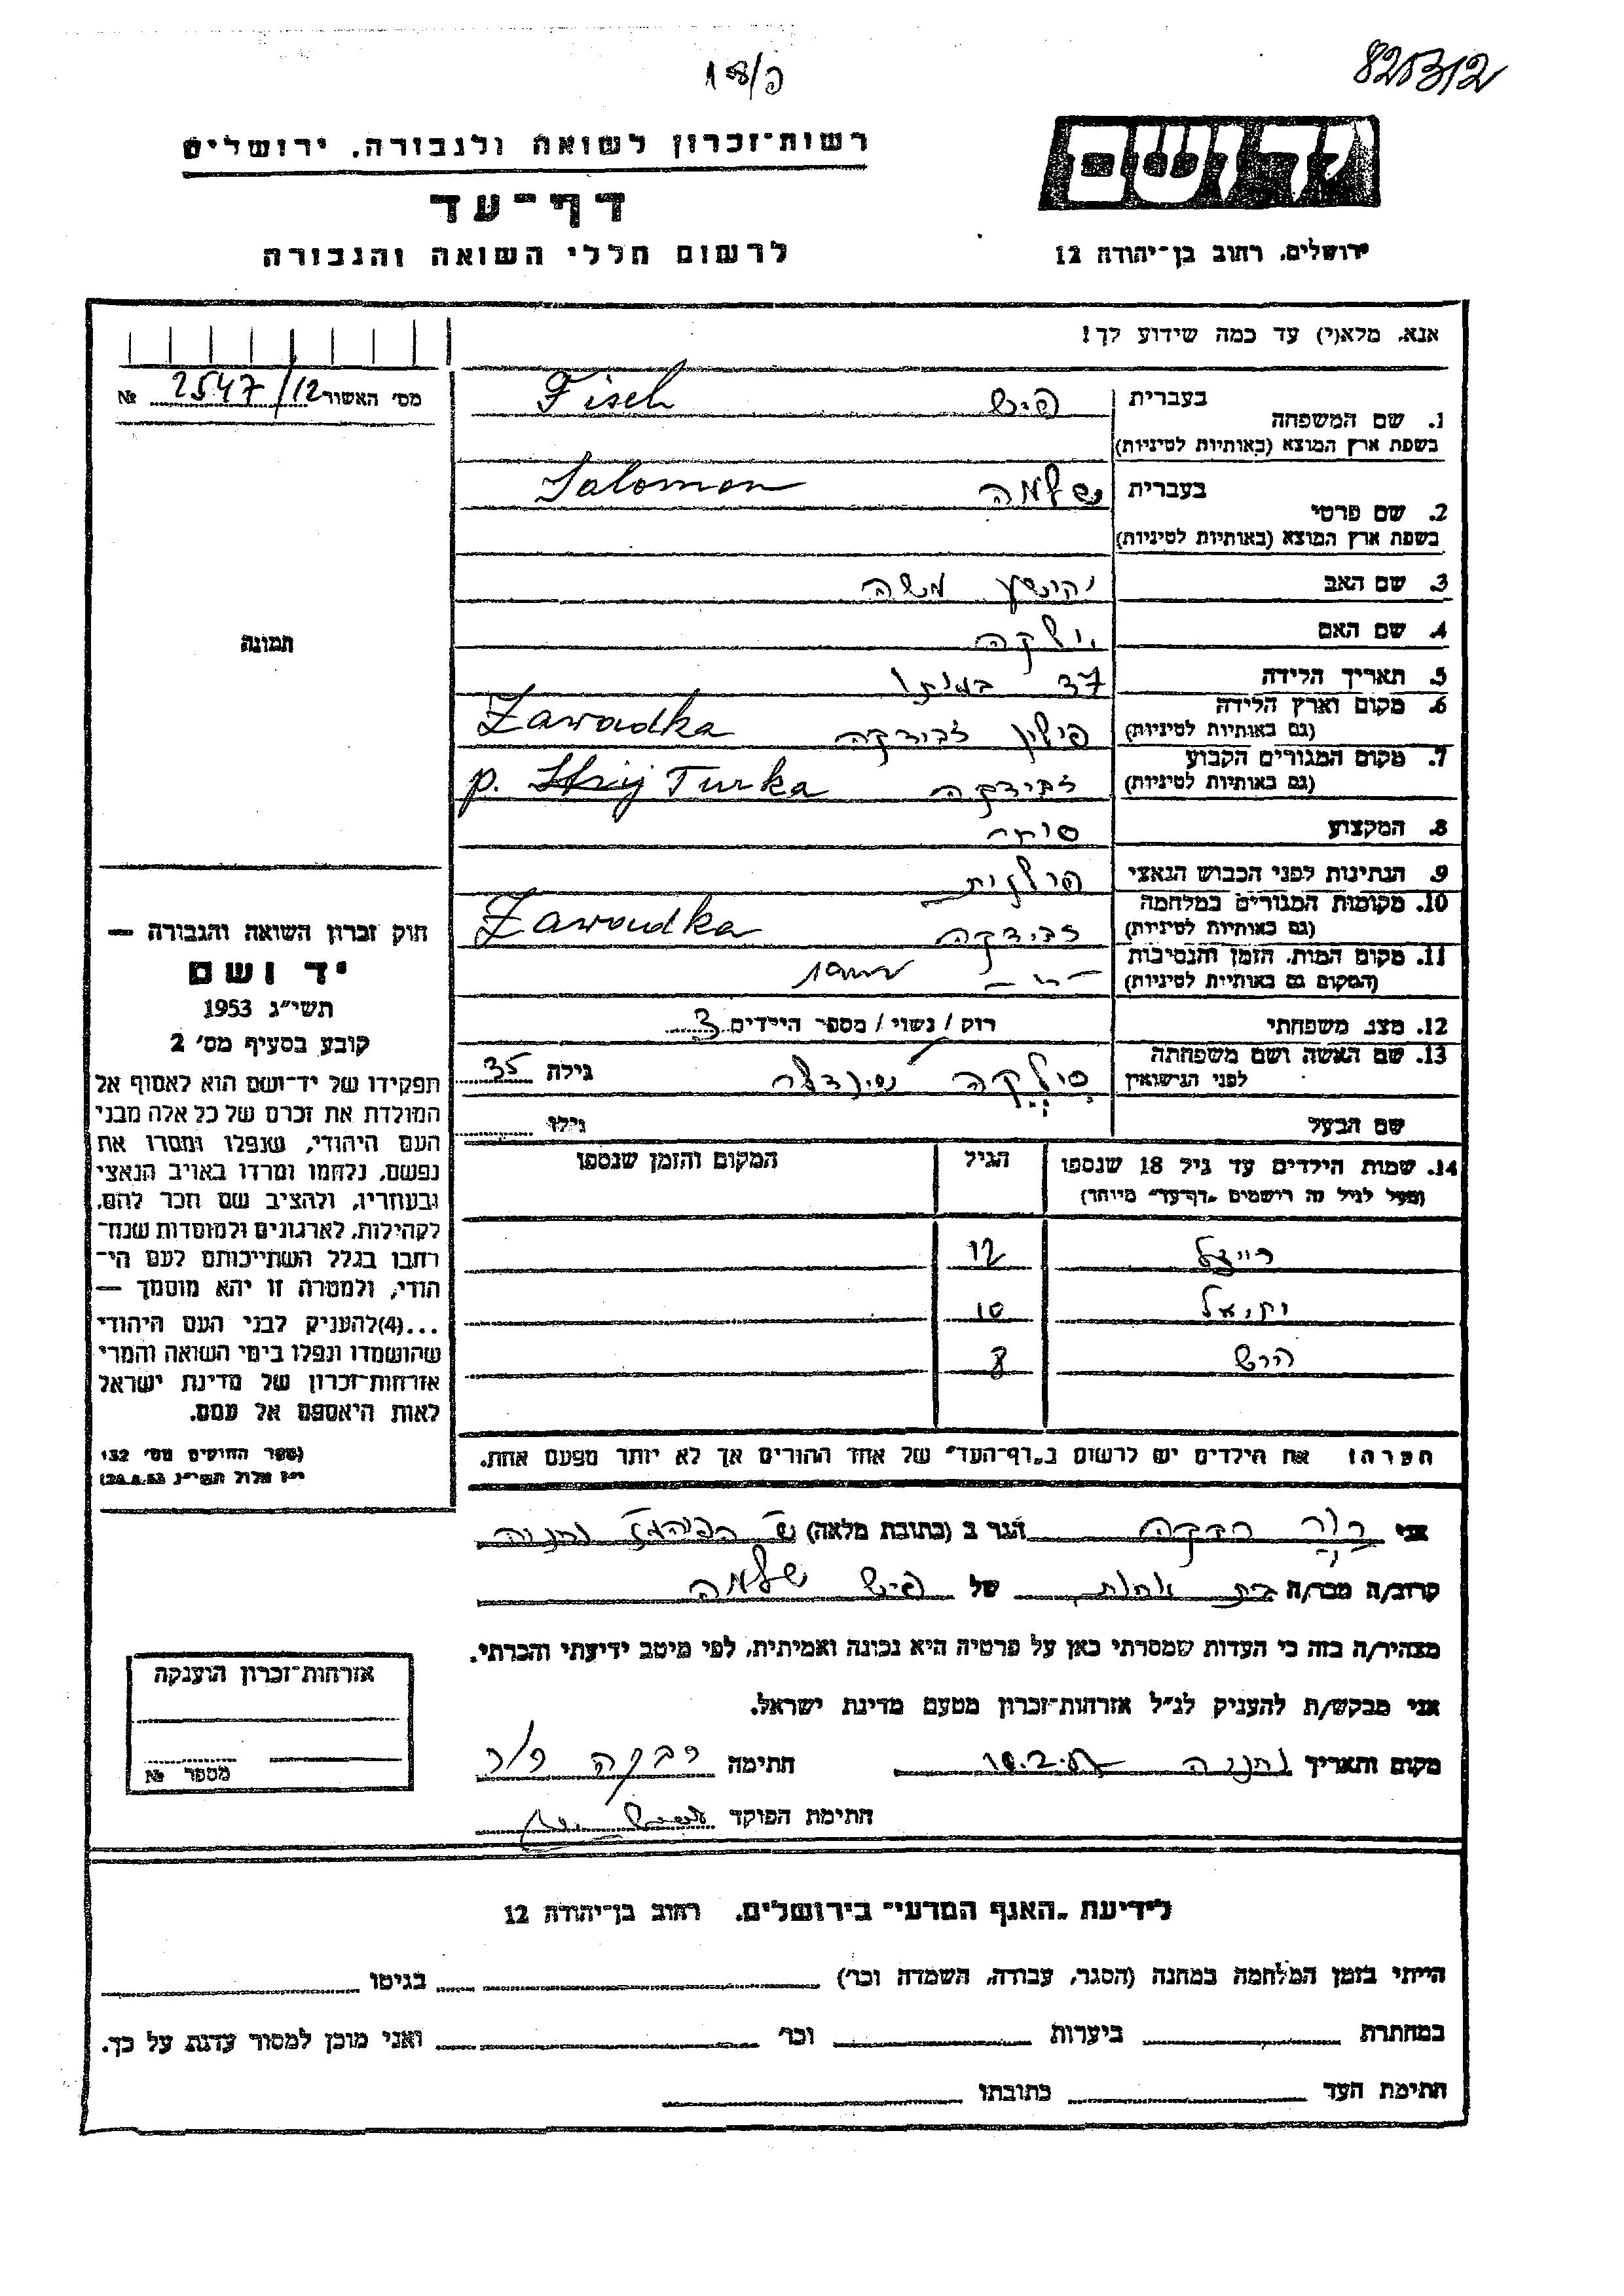 פ/18 1
825312
רשות-זכרון לשואה ולגבורה, ירושלים
דף-עד
לרשום חללי השואה והגבורה
יד ושם
ירושלים, רחוב בן-יהודה 12
אנא, מלא(י) עד כמה שידוע לך!
מס' האשור 2547/12 №
תמונה
1. שם המשפחה בעברית פיש Fisch
בשפת ארץ המוצא (באותיות לטיניות)
2. שם פרטי בעברית שלמה Salomon
בשפת ארץ המוצא (באותיות לטיניות)
3. שם האב יהושע משה
4. שם האם
5. תאריך הלידה 37 במותו
6. מקום וארץ הלידה פולין זבודקה Zawadka
(גם באותיות לטיניות)
7. מקום המגורים הקבוע זבודקה p. Stryj Turka
(גם באותיות לטיניות)
8. המקצוע סוחר
9. הנתינות לפני הכבוש הנאצי פולנית
10. מקומות המגורים במלחמה זבודקה Zawadka
(גם באותיות לטיניות)
11. מקום המות, הזמן והנסיבות
(המקום גם באותיות לטיניות)
12. מצב משפחתי רוק / נשוי / מספר הילדים 3
13. שם האשה ושם משפחתה גילה 35
לפני הנישואין
שם הבעל גילו
14. שמות הילדים עד גיל 18 שנספו הגיל המקום והזמן שנספו
(מעל לגיל זה רושמים "דף-עד" מיוחד)
רייזל 12
יחיאל 10
הירש 8
הערה: את הילדים יש לרשום ב"דף-העד" של אחד ההורים אך לא יותר מפעם אחת.
חוק זכרון השואה והגבורה —
יד ושם
תשי"ג 1953
קובע בסעיף מס' 2
תפקידו של יד-ושם הוא לאסוף אל
המולדת את זכרם של כל אלה מבני
העם היהודי, שנפלו ומסרו את
נפשם, נלחמו ומרדו באויב הנאצי
ובעוזריו, ולהציב שם וזכר להם,
לקהילות, לארגונים ולמוסדות שנח-
רבו בגלל השתייכותם לעם הי-
הודי, ולמטרה זו יהא מוסמך —
...(4) להעניק לבני העם היהודי
שהושמדו ונפלו בימי השואה והמרי
אזרחות-זכרון של מדינת ישראל
לאות היאספם אל עמם.
(ספר החוקים מס' 132
י"ז אלול תשי"ג 28.8.53)
אני רבקה הגר ב (כתובת מלאה) נתניה
קרוב/ה מכר/ה בת אחות של פיש שלמה
מצהיר/ה בזה כי העדות שמסרתי כאן על פרטיה היא נכונה ואמיתית, לפי מיטב ידיעתי והכרתי.
אני מבקש/ת להעניק לנ"ל אזרחות-זכרון מטעם מדינת ישראל.
מקום ותאריך נתניה חתימה רבקה
חתימת הפוקד
אזרחות-זכרון הוענקה
מספר №
לידיעת "האגף המדעי" בירושלים, רחוב בן-יהודה 12
הייתי בזמן המלחמה במחנה (הסגר, עבודה, השמדה וכו') בגיטו
במחתרת ביערות וכו' ואני מוכן למסור עדות על כך.
חתימת העד כתובתו